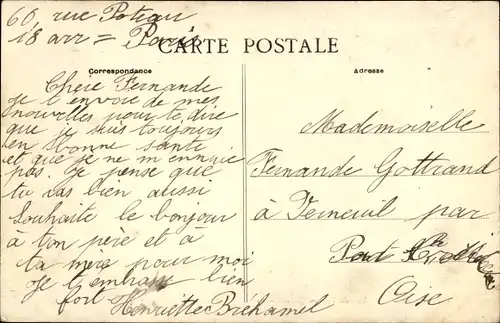 60, rue Poteau
18 arr = Paris
CARTE POSTALE
Correspondance
Adresse
Chere Fernande
je t'envoie de mes
nouvelles pour te dire
que je suis toujours
en bonne santé
et que je ne m'ennuie
pas. Je pense que
tu vas bien aussi
Souhaite le bonjour
à ton père et à
ta mère pour moi
Je t'embrasse bien
fort Henriette Bréhamel
Mademoiselle
Fernande Gottrand
à Verneuil par
Pont
Oise